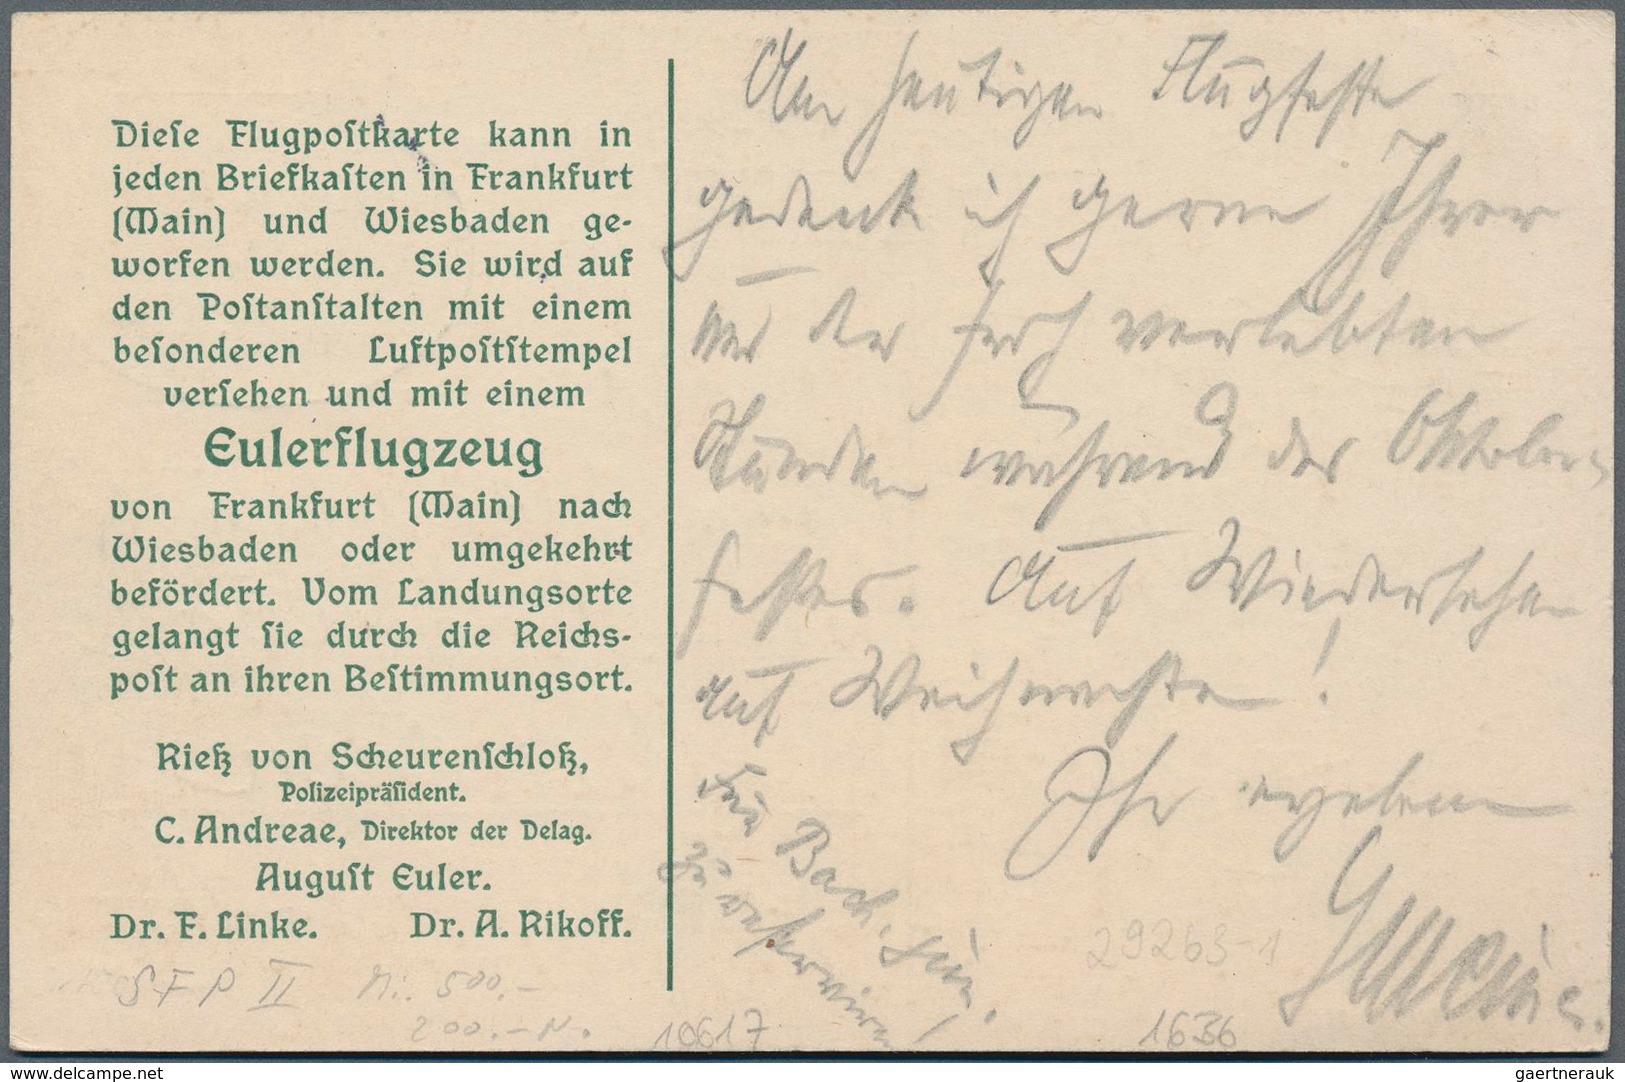 Dieſe Flugpoſtkarte kann in
jeden Briefkaſten in Frankfurt
(Main) und Wiesbaden ge-
worfen werden. Sie wird auf
den Poſtanſtalten mit einem
beſonderen Luftpoſtſtempel
verſehen und mit einem
Eulerflugzeug
von Frankfurt (Main) nach
Wiesbaden oder umgekehrt
befördert. Vom Landungsorte
gelangt ſie durch die Reichs-
poſt an ihren Beſtimmungsort.
Rieß von Scheurenſchloß,
Polizeipräſident.
C. Andreae, Direktor der Delag.
Auguſt Euler.
Dr. F. Linke. Dr. A. Rikoff.
S F P II Mi. 500.-
200.-N.
Am heutigen Flugfeste
gedenk ich gerne Ihrer
und der froh verlebten
Stunden während des Oktober-
festes. Auf Wiedersehen
auf Weihnachten!
Ihr ergebener
Für Bach.
zu reservieren!
29263-1
10617
1636
delcampe.net
gaertnerauk